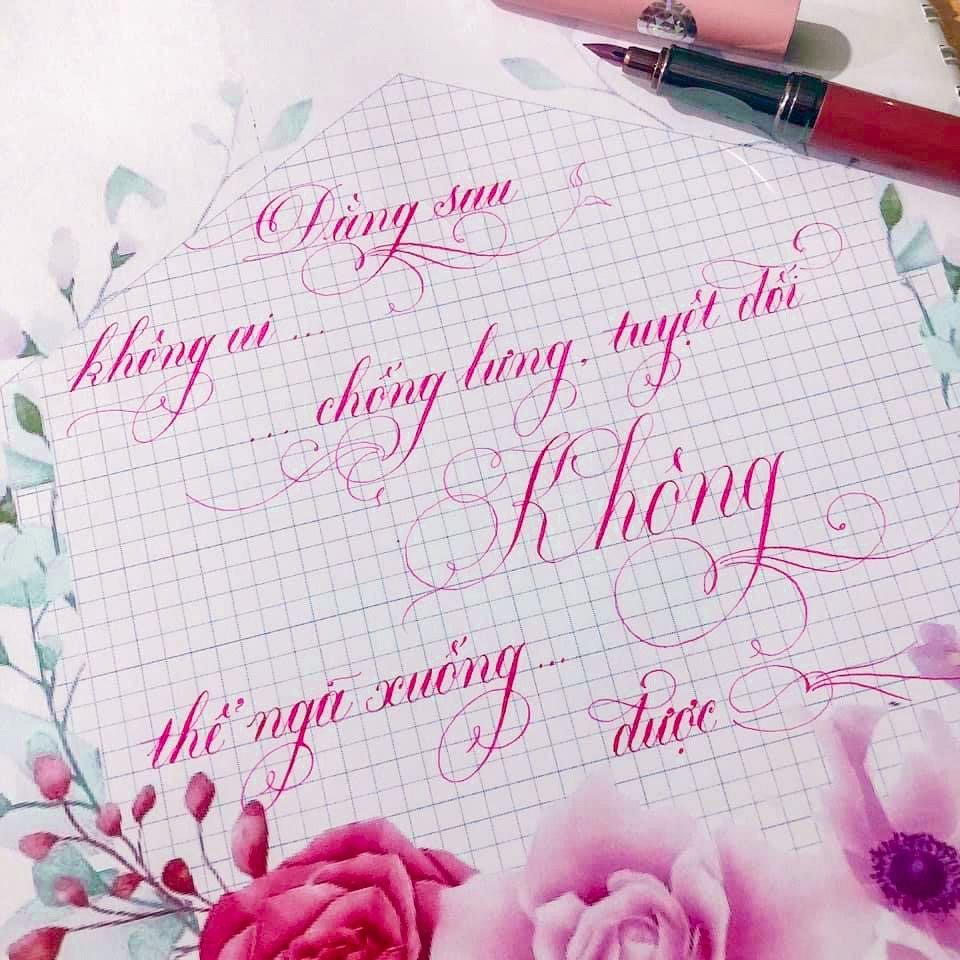 Đằng sau
không ai ...
... chống lưng, tuyệt đối
Không
thể ngã xuống ...
được